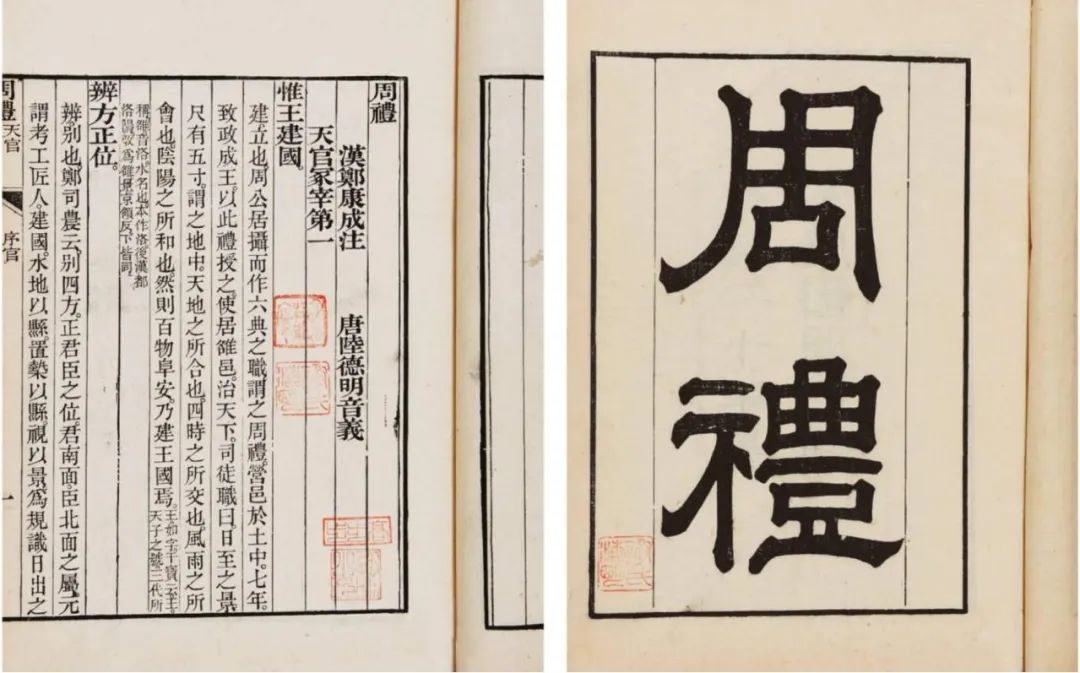 周禮
周禮
漢鄭康成注 唐陸德明音義
天官冢宰第一
惟王建國。
建。立也。周公居攝而作六典之職。謂之周禮。營邑於土中。七年。
致政成王。以此禮授之。使居雒邑。治天下。司徒職曰。日至之景
尺有五寸。謂之地中。天地之所合也。四時之所交也。風雨之所
會也。陰陽之所和也。然則百物阜安。乃建王國焉。
王如字。干寶云。王。
天子之號。三代所
稱。雒音洛。水名也。本作洛。後漢都
洛陽。改爲雒。景京領反。下皆同。
辨方正位。
辨。別也。鄭司農云。別四方。正君臣之位。君南面。臣北面之屬。元
謂考工。匠人。建國。水地以縣。置槷以縣。視以景。爲規識日出之
周禮 天官 序官 一